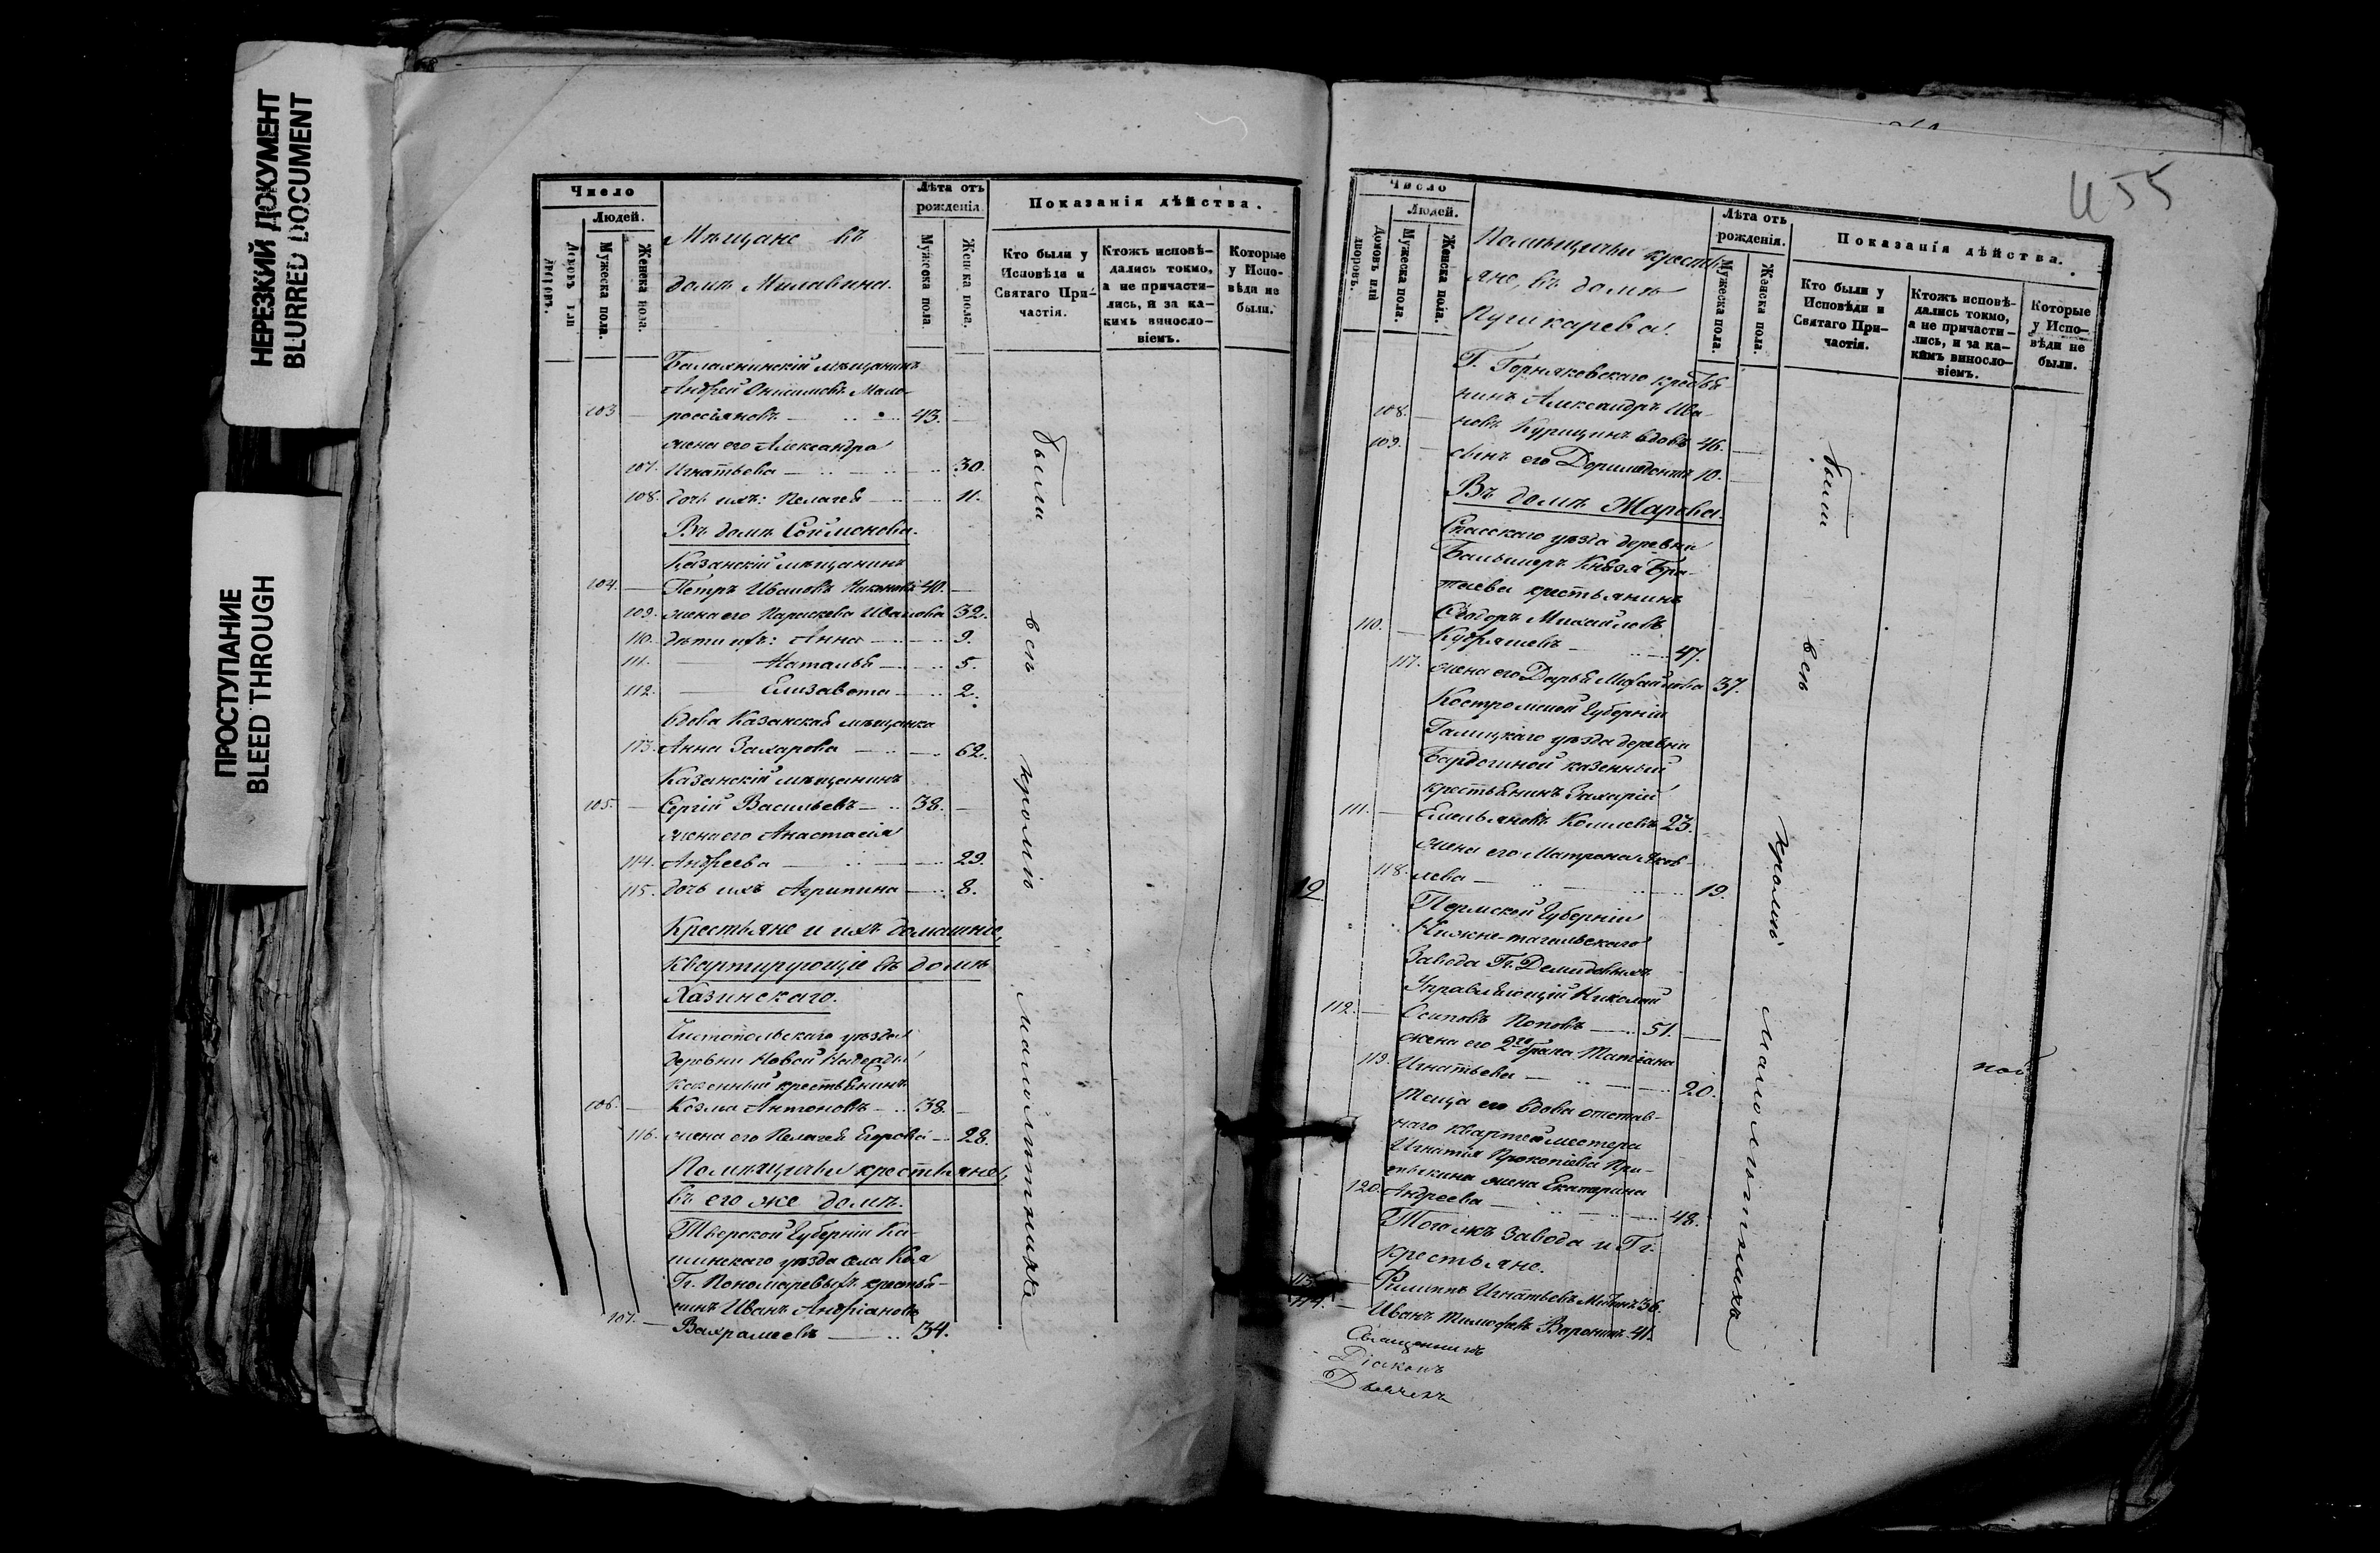 НЕРЕЗКИЙ ДОКУМЕНТ
BLURRED DOCUMENT
ПРОСТУПАНИЕ
BLEED THROUGH
Число
Людей.
Домовъ или дворовъ.
Мужеска пола.
Женска пола.
Мѣщане въ
домѣ Милавина.
Лѣта отъ
рожденія.
Мужеска пола.
Женска пола.
Показанія дѣйства.
Кто были у
Исповѣди и
Святаго При-
частія.
Ктожъ исповѣ-
дались токмо,
а не причасти-
лись, и за ка-
кимъ винosло-
віемъ.
Которые
у Испо-
вѣди не
были.
Балахнинскій мѣщанинъ
Андрей Онисимовъ Мало-
103. россіяновъ 43.
жена его Александра
107. Игнатьева 30.
108. дочь ихъ: Пелагея 11.
Въ домѣ Соймонова.
Казанскій мѣщанинъ
104. Петръ Ивановъ 40.
109. жена его Параскева Иванова 32.
110. дѣти ихъ: Анна 9.
111. Наталья 5.
112. Елизавета 2.
вдова Казанская мѣщанка
113. Анна Захарова 62.
Казанскій мѣщанинъ
105. Сергій Васильевъ 38.
жена его Анастасія
114. Андреева 29.
115. дочь ихъ Агрипина 8.
Крестьяне и ихъ домашніе,
квартирующіе въ домѣ
Хазинскаго.
Чистопольскаго уѣзда
деревни Новой
казенный крестьянинъ
106. Козма Антоновъ 38.
116. жена его Пелагея Егорова 28.
Помѣщичьи крестьяне,
въ его же домѣ.
Тверской Губерніи Ка-
шинскаго уѣзда села
Гг. Пономаревыхъ крестья-
нинъ Иванъ Андріановъ
107. Вахрамеевъ 34.
были всѣ кромѣ малолѣтнихъ
455
Число
Людей.
Домовъ или дворовъ.
Мужеска пола.
Женска пола.
Помѣщичьи крестья-
яне, въ домѣ
Пушкарева.
Лѣта отъ
рожденія.
Мужеска пола.
Женска пола.
Показанія дѣйства.
Кто были у
Исповѣди и
Святаго При-
частія.
Ктожъ исповѣ-
дались токмо,
а не причасти-
лись, и за ка-
кимъ винosло-
віемъ.
Которые
у Испо-
вѣди не
были.
Г. Горняковскаго крестья-
нинъ Александръ Ива-
108. новъ Курицинъ вдовъ 46.
109. сынъ его 10.
Въ домѣ Жарова.
Спасскаго уѣзда деревни
Балымеръ Князя
крестьянинъ
Ѳеодоръ Михайловъ
110. Кудряшевъ 47.
117. жена его Дарья Михайлова 37.
Костромской Губерніи
Галицкаго уѣзда деревни
казенный
крестьянинъ Захарій
111. Емельяновъ 23.
жена его Матрона Яков-
118. лева 19.
12
Пермской Губерніи
Нижне-тагильскаго
Завода Гг. Демидовыхъ
Управляющій Николай
112. Осиповъ Поповъ 51.
жена его 2го брака Татіана
119. Игнатьева 20.
Теща его вдова отстав-
наго квартермистера
Игнатія Прокопіева
жена Екатерина
120. Андреева 48.
Тогожъ Завода и Гг.
крестьяне.
113. Филиппъ Игнатьевъ 36.
114. Иванъ Тимоѳеевъ Воронинъ 41.
были всѣ кромѣ малолѣтнихъ
Священникъ
Діаконъ
Дьячекъ